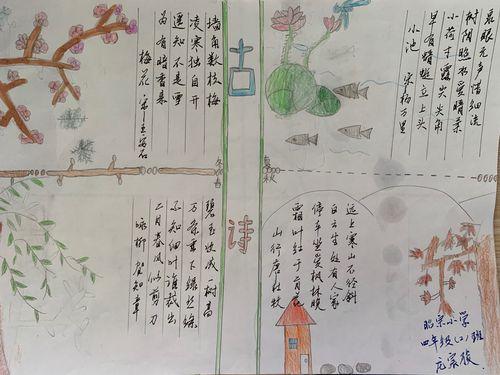 古诗
墙角数枝梅
凌寒独自开
遥知不是雪
为有暗香来
梅花 宋 王安石
泉眼无声惜细流
树阴照水爱晴柔
小荷才露尖尖角
早有蜻蜓立上头
小池 宋 杨万里
冬
春
夏
秋
碧玉妆成一树高
万条垂下绿丝绦
不知细叶谁裁出
二月春风似剪刀
咏柳 贺知章
远上寒山石径斜
白云生处有人家
停车坐爱枫林晚
霜叶红于二月花
山行 唐 杜牧
小学
四年级(2)班